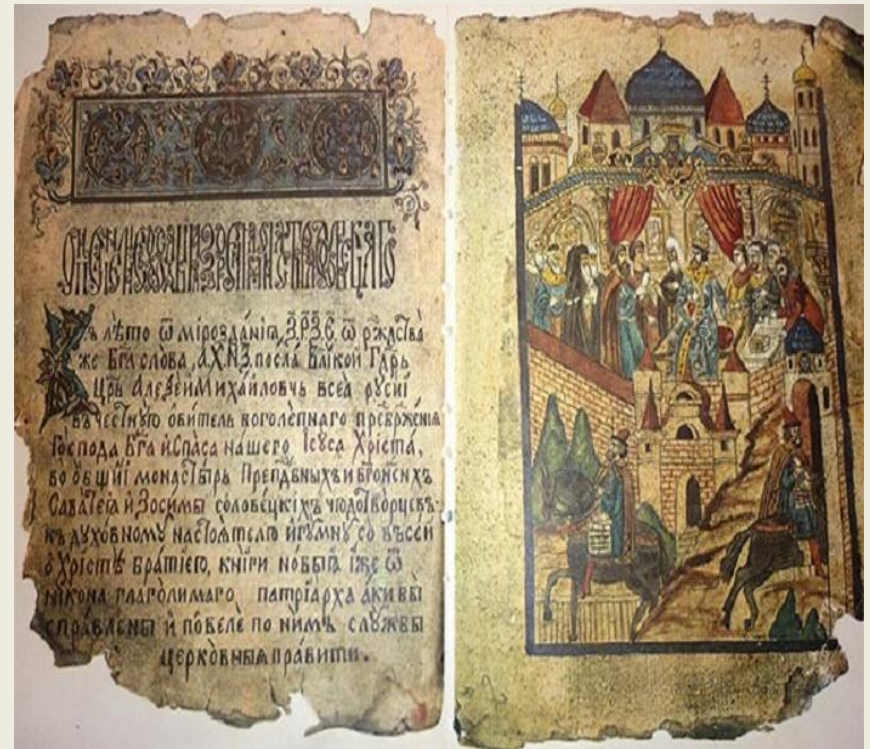 Въ лѣто ѿ мірозданіѧ ҂ЗРЗЄ ѿ ржⷭтва
же Бг҃а слова, ҂АХНЗ посла Вл҃икой Гд҃рь
Цр҃ь Алеѯей Михайловчь всеа русиі
въ честную обитель боголепнаго превбрженія
Господа Бг҃а и Спаса нашего Ісуса Хріста,
во общиі монастырь Препдбныхъ и бгонснхъ
Саватеіа и Зосимы соловецкіхъ чюдотворцевъ
къ духовному настоѧтелю игумну со въсеи
о Христѣ братіею, книги новыѧ іже ѿ
никона глаголимаго патріарха аки бы
справлены и повеле по нимъ службы
церковныѧ правити.